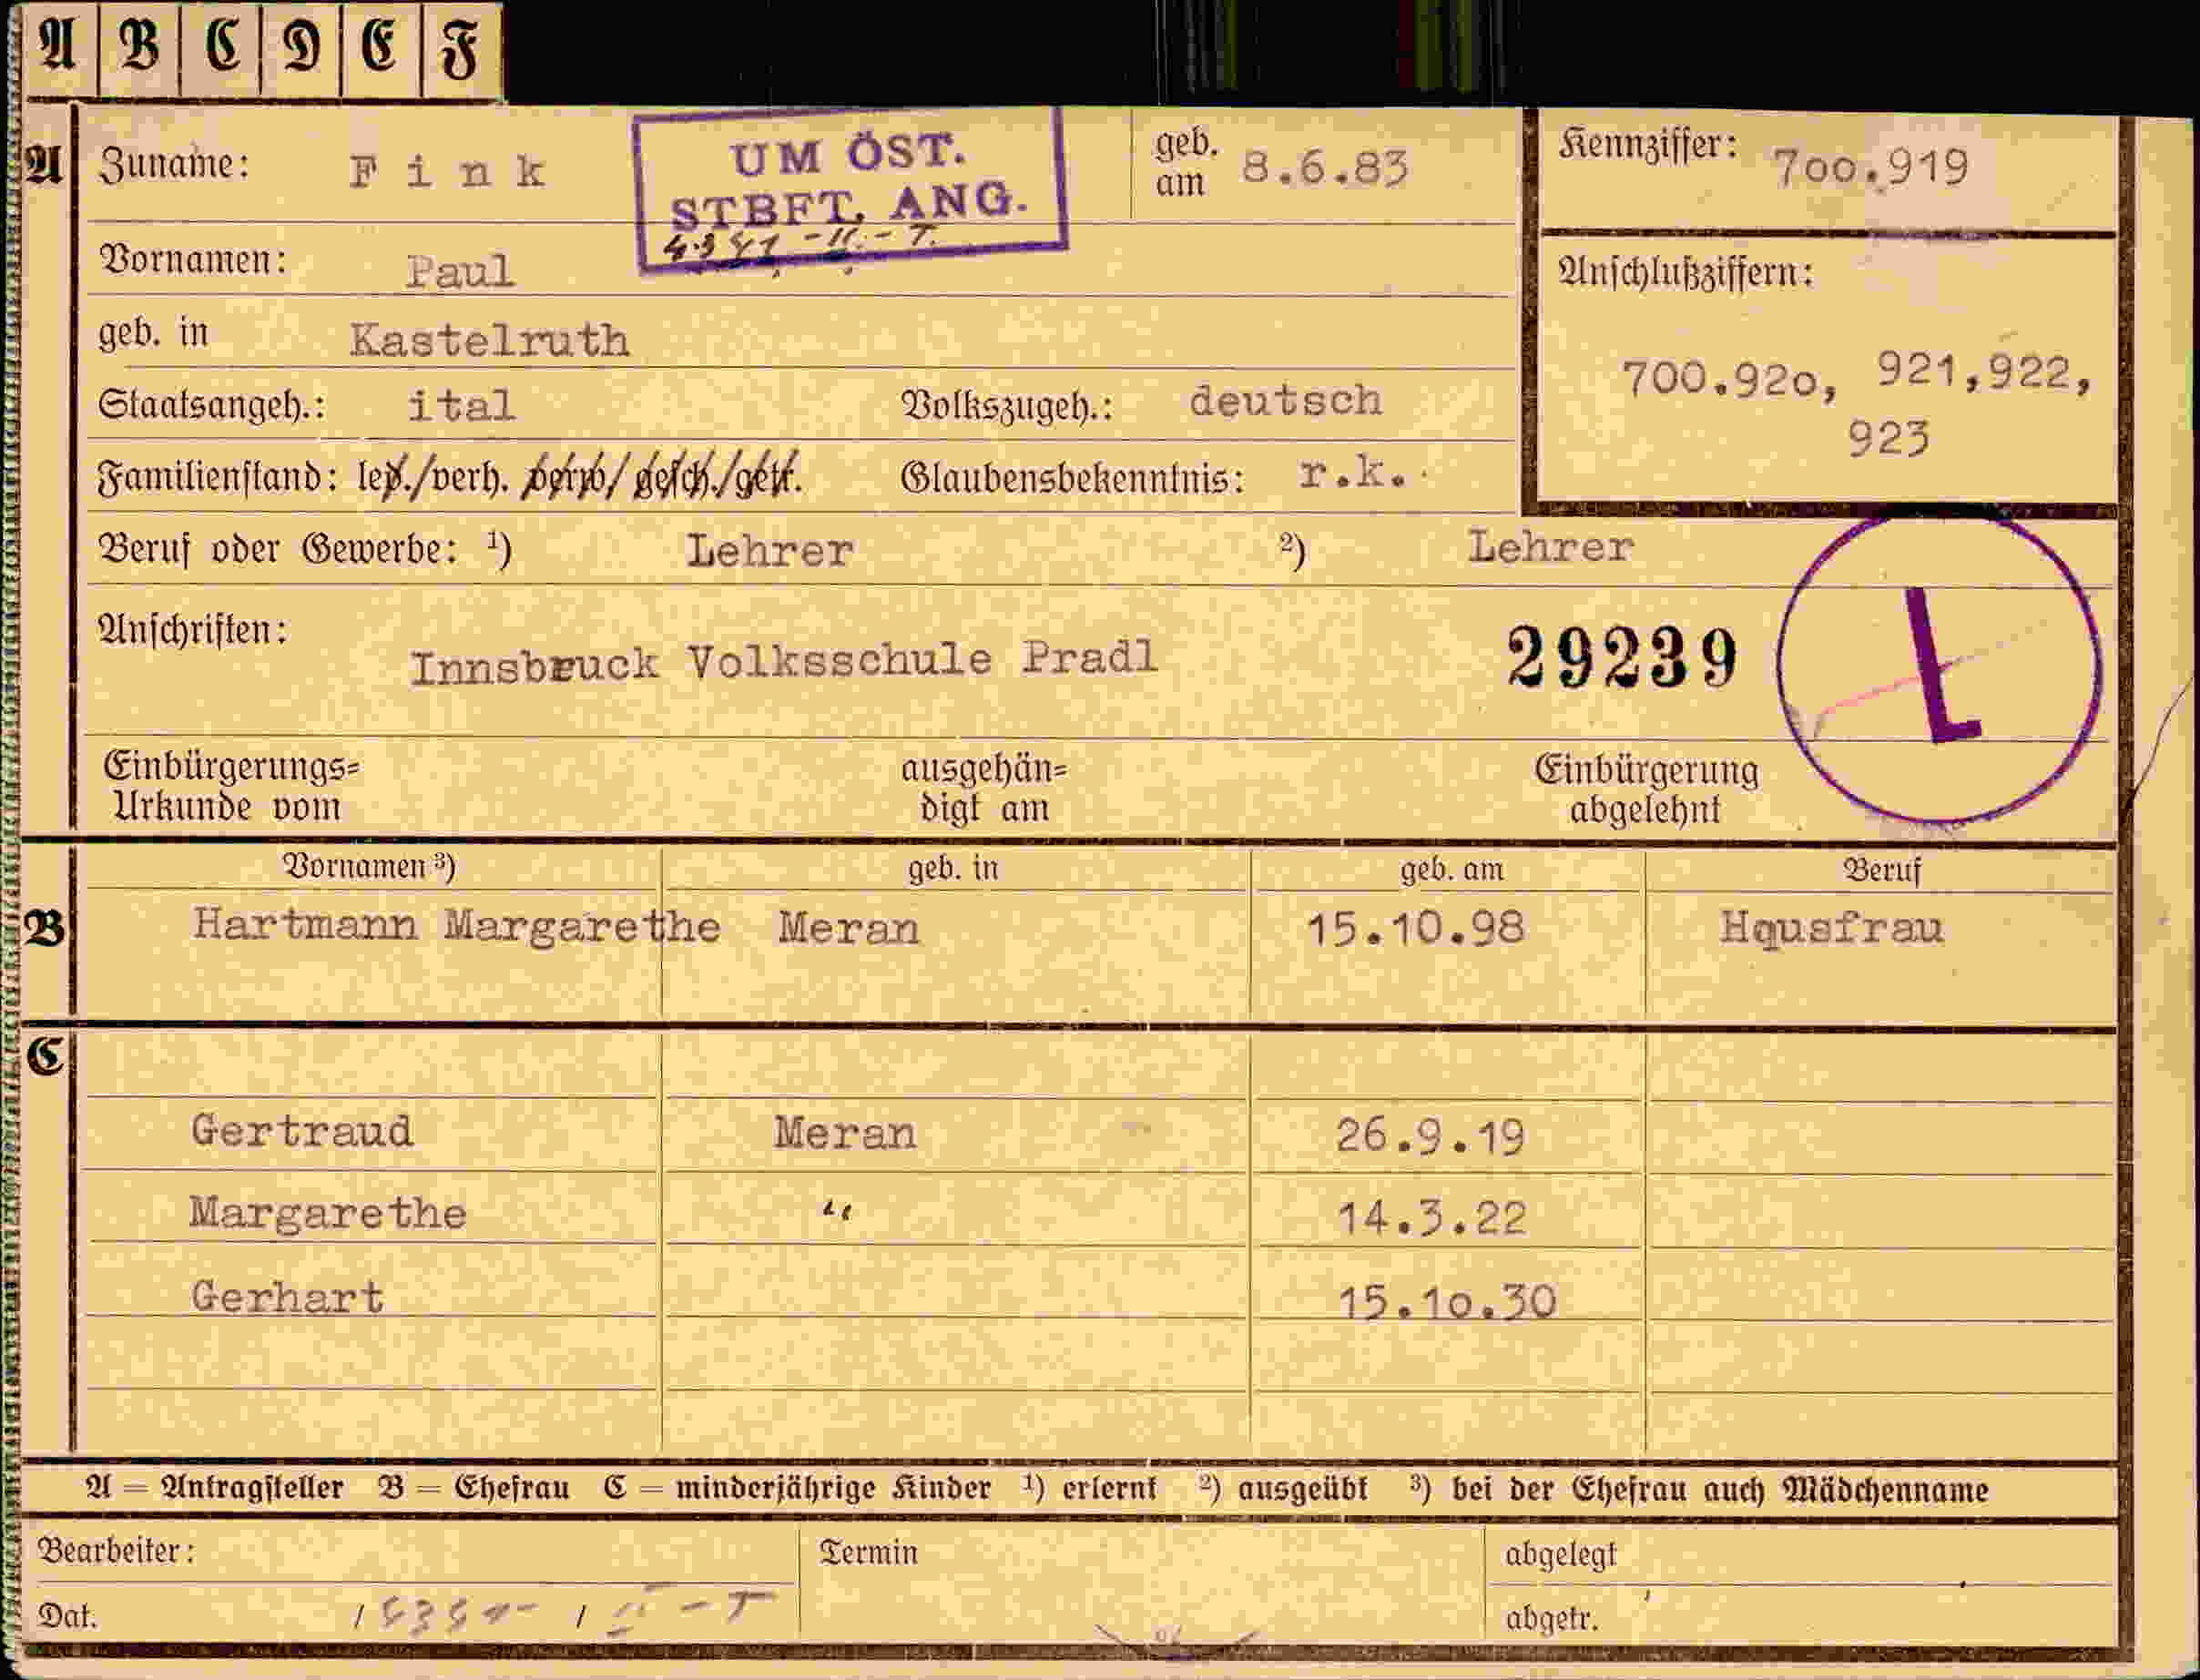 A B C D E F
A Zuname: Fink geb. am 8.6.83 Kennziffer: 7oo.919
UM ÖST.
STBFT. ANG.
Vornamen: Paul
Anschlußziffern:
700.92o, 921,922,
923
geb. in Kastelruth
Staatsangeh.: ital Volkszugeh.: deutsch
Familienstand: led./verh. verw/gesch./getr. Glaubensbekenntnis: r.k.
Beruf oder Gewerbe: ¹) Lehrer ²) Lehrer
Anschriften: Innsbruck Volksschule Pradl 29239 L
Einbürgerungs= ausgehän= Einbürgerung
Urkunde vom digt am abgelehnt
Vornamen ³) geb. in geb. am Beruf
B Hartmann Margarethe Meran 15.10.98 Hqusfrau
C
Gertraud Meran 26.9.19
Margarethe " 14.3.22
Gerhart 15.1o.30
A = Antragsteller B = Ehefrau C = minderjährige Kinder ¹) erlernt ²) ausgeübt ³) bei der Ehefrau auch Mädchenname
Bearbeiter: Termin abgelegt
Dat. abgetr.